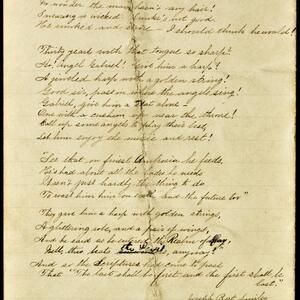 No wonder the man hasn't any hair!
Swearing is wicked. Smoke's not good.
He smoked and swore — I should think he would!
Thirty years with that tongue so sharp?
Ho! Angel Gabriel! Give him a harp!
A jeweled harp with a golden string!
Good sir, pass in where the angels sing!
Gabriel, give him a seat alone —
One with a cushion up near the throne!
Call up some angels to play their best,
Let him enjoy the music and rest!
See that on finest Ambrosia he feeds,
He's had about all the Hades he needs
It isn't just hardly the thing to do
To roast him on earth and the future too"
They gave him a harp with golden strings,
A glittering robe, and a pair of wings,
And he said as he entered the Realm of Day,
"Well, this beats anyway!"
And so the Scriptures had come to pass
That "The last shall be first and the first shall be
last."
Joseph Bert